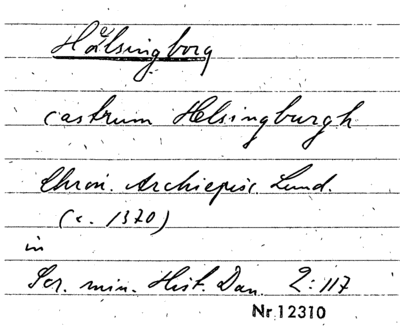 Hälsingborg
castrum Helsingburgh
Chron. Archiepisc. Lund.
(c. 1370)
in
Scr. min. Hist. Dan. 2:117
Nr 12310